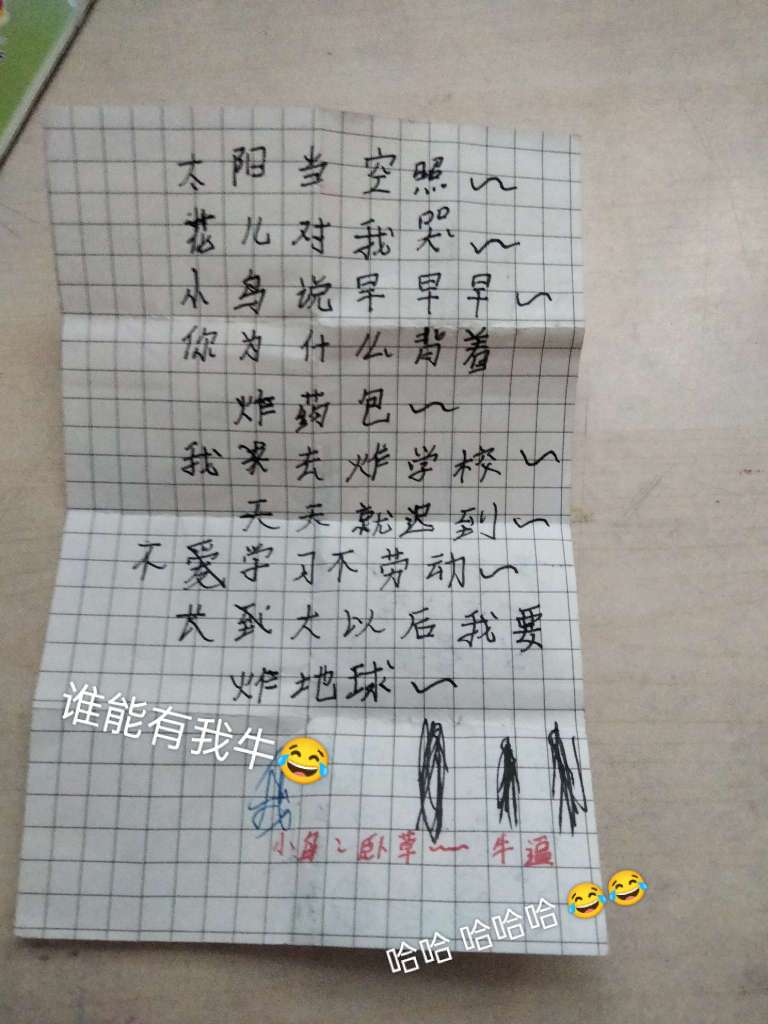 太阳当空照~
花儿对我哭~
小鸟说早早早~
你为什么背着
炸药包~
我要去炸学校~
天天就迟到~
不爱学习不劳动~
长到大以后我要
炸地球~
谁能有我牛😂
我
小鸟:卧草~ 牛逼
哈哈 哈哈哈 😂😂